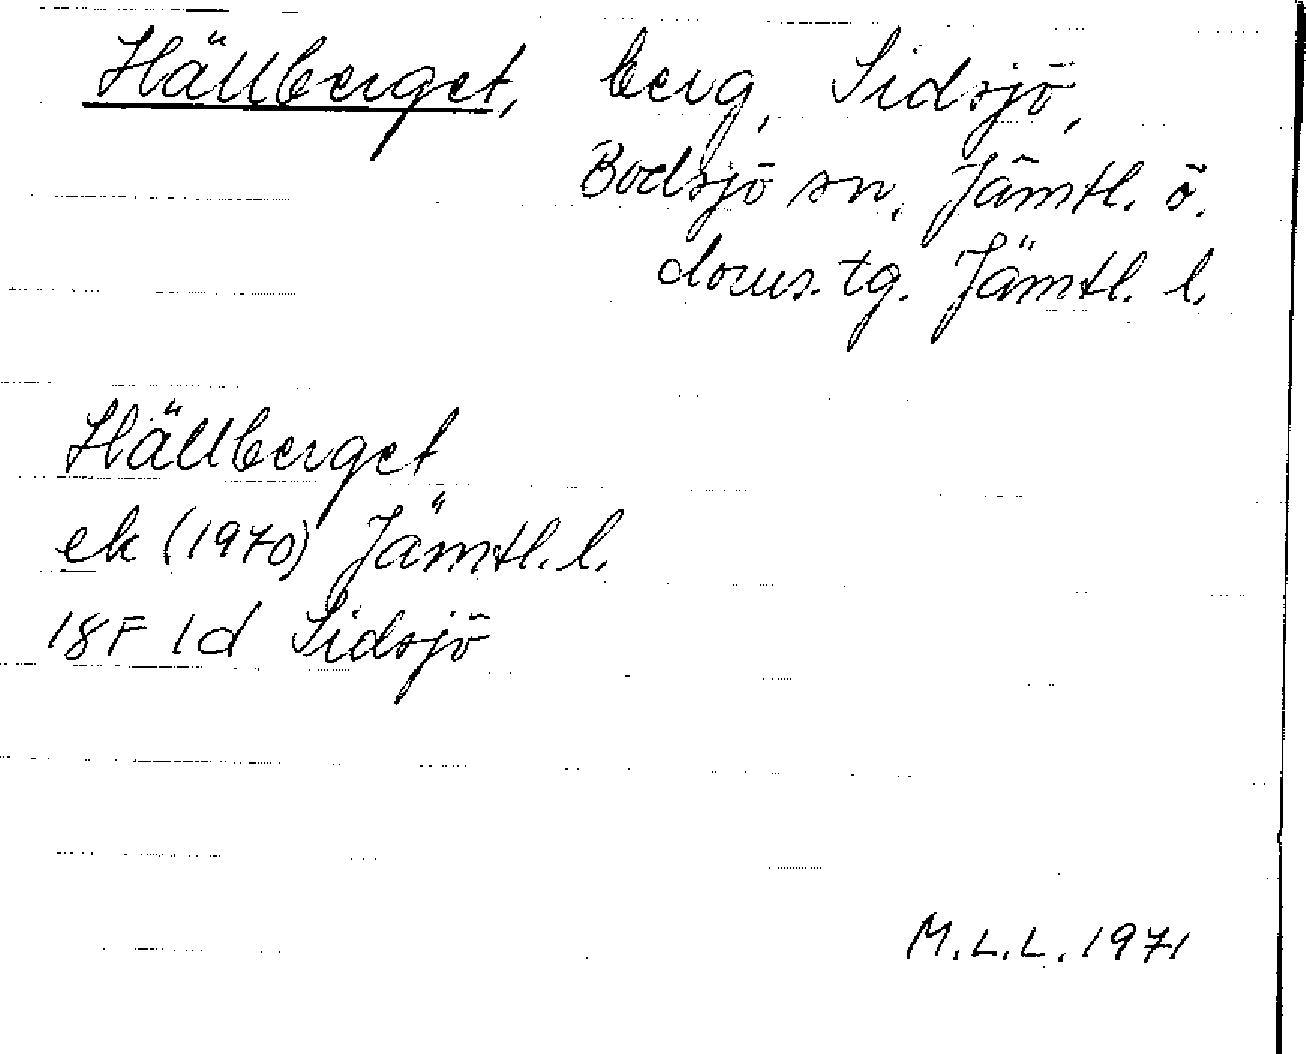 Hällberget, berg, Sidsjö,
Bodsjö sn, Jämtl. ö.
doms. tg. Jämtl. l.
Hällberget
ek (1970) Jämtl. l.
18F 1d Sidsjö
M.L.L. 1971